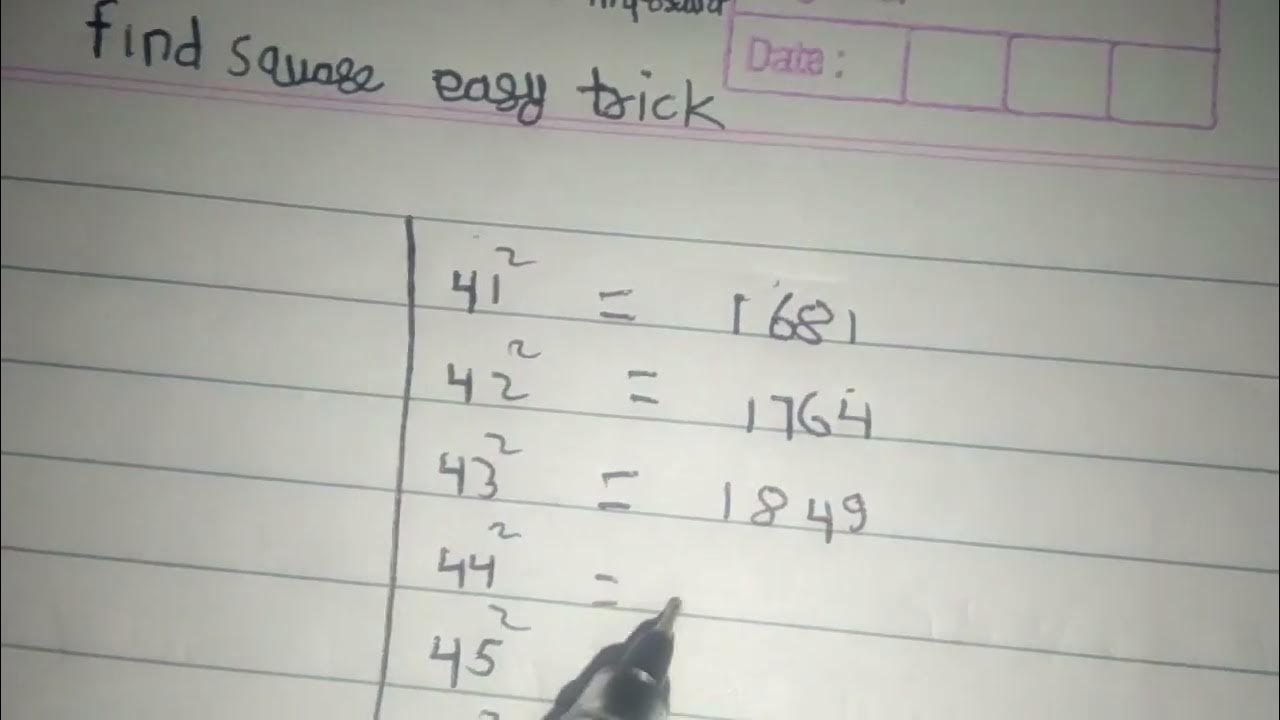 Date:
find square easy trick
41² = 1681
42² = 1764
43² = 1849
44² =
45²